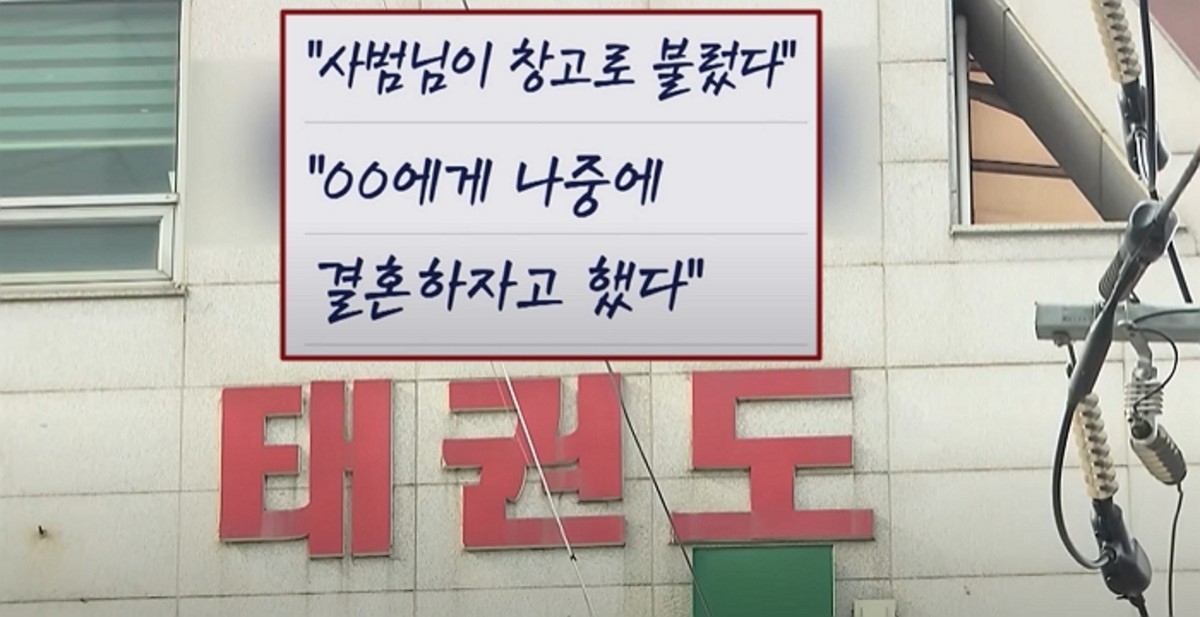 "사범님이 창고로 불렀다"
"OO에게 나중에
결혼하자고 했다"
태권도